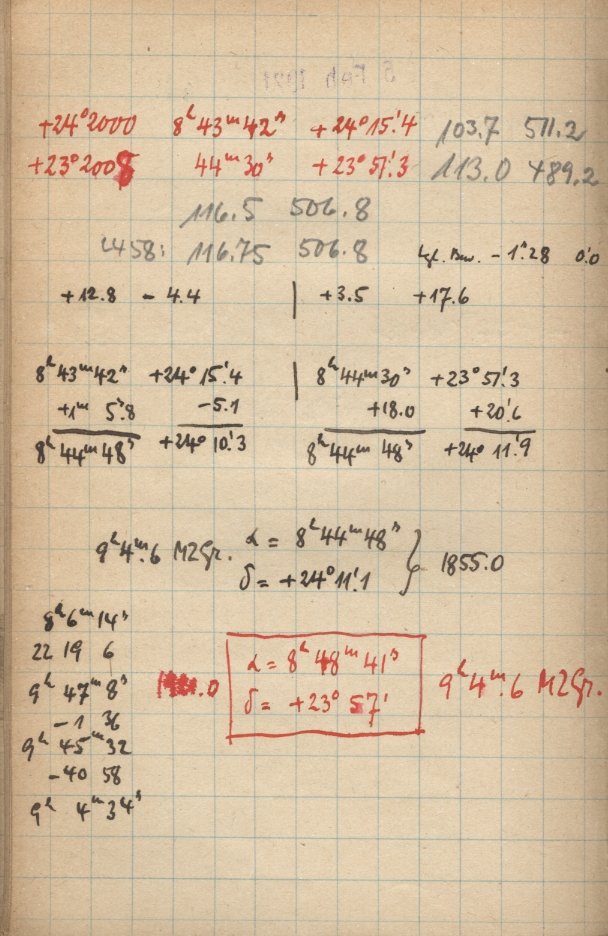 +24°2000 8ʰ43ᵐ42ˢ +24°15.'4 103.7 511.2
+23°2008 44ᵐ30ˢ +23°57.'3 113.0 489.2
116.5 506.8
458: 116.75 506.8 tgl. Bew. -1.ᵐ28 0.'0
+12.8 - 4.4 | +3.5 +17.6
8ʰ43ᵐ42ˢ +24°15.'4 | 8ʰ44ᵐ30ˢ +23°57.'3
+1ᵐ 5.ˢ8 -5.1 +18.0 +20.'6
8ʰ44ᵐ48ˢ +24°10.'3 8ʰ44ᵐ48ˢ +24°11.'9
9ʰ4ᵐ.6 MZGr. α = 8ʰ44ᵐ48ˢ
δ = +24°11.'1 } 1855.0
8ʰ6ᵐ14ˢ
22 19 6
9ʰ 47ᵐ8ˢ
-1 36
9ʰ 45ᵐ32
-40 58
9ʰ 4ᵐ34ˢ
.0 α = 8ʰ 48ᵐ 41ˢ
δ = +23° 57' 9ʰ4ᵐ.6 MZGr.